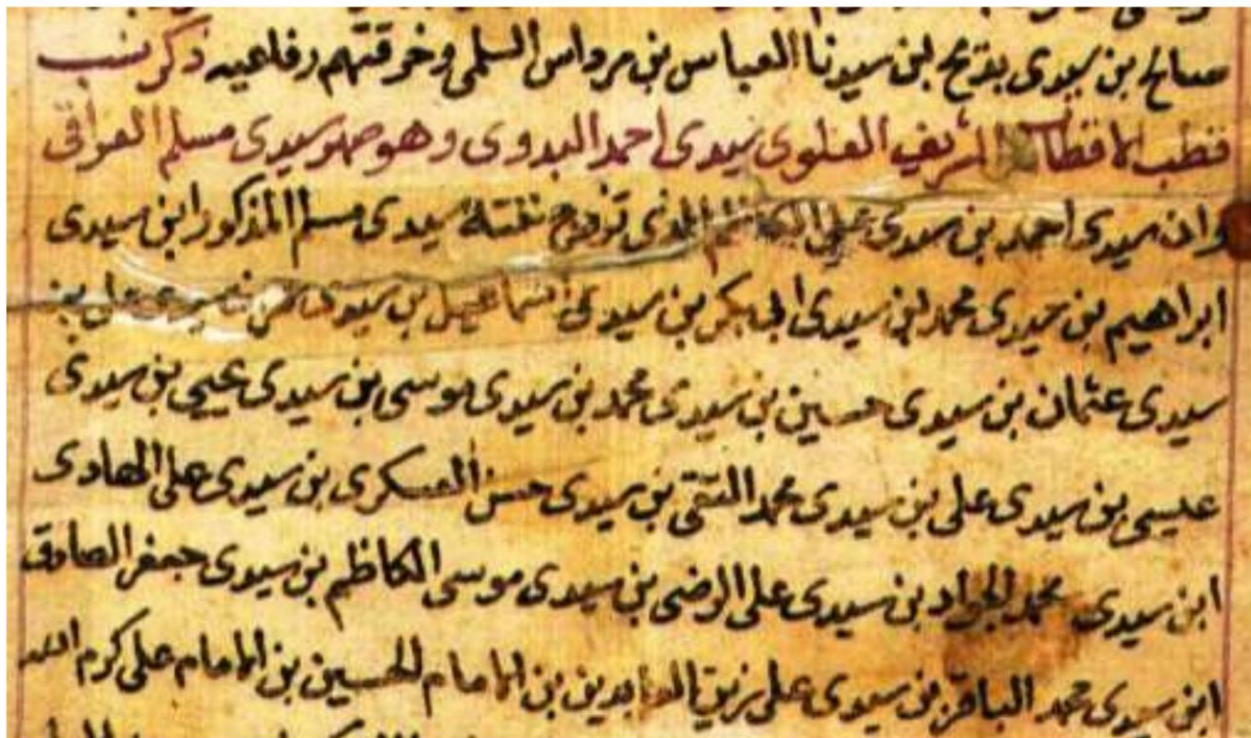 صالح بن سيدى بديح بن سيدنا العباس بن مرداس السلمى وخرقتهم رفاعيه ذكر نسب
قطب الاقطاب الشريف العلوى سيدى احمد البدوى وهو صهر سيدى مسلم العراقى
وان سيدى احمد بن سيدى على الذى تزوج سيدى مسلم المذكور ابن سيدى
ابراهيم بن سيدى محمد بن سيدى ابى بكر بن سيدى اسماعيل بن سيدى عمر بن سيدى على بن
سيدى عثمان بن سيدى حسين بن سيدى محمد بن سيدى موسى بن سيدى يحيى بن سيدى
عيسى بن سيدى على بن سيدى محمد التقى بن سيدى حسن العسكرى بن سيدى على الهادى
ابن سيدى محمد الجواد بن سيدى على الرضى بن سيدى موسى الكاظم بن سيدى جعفر الصادق
ابن سيدى محمد الباقر بن سيدى على زين العابدين بن الامام الحسين بن الامام على كرم الله